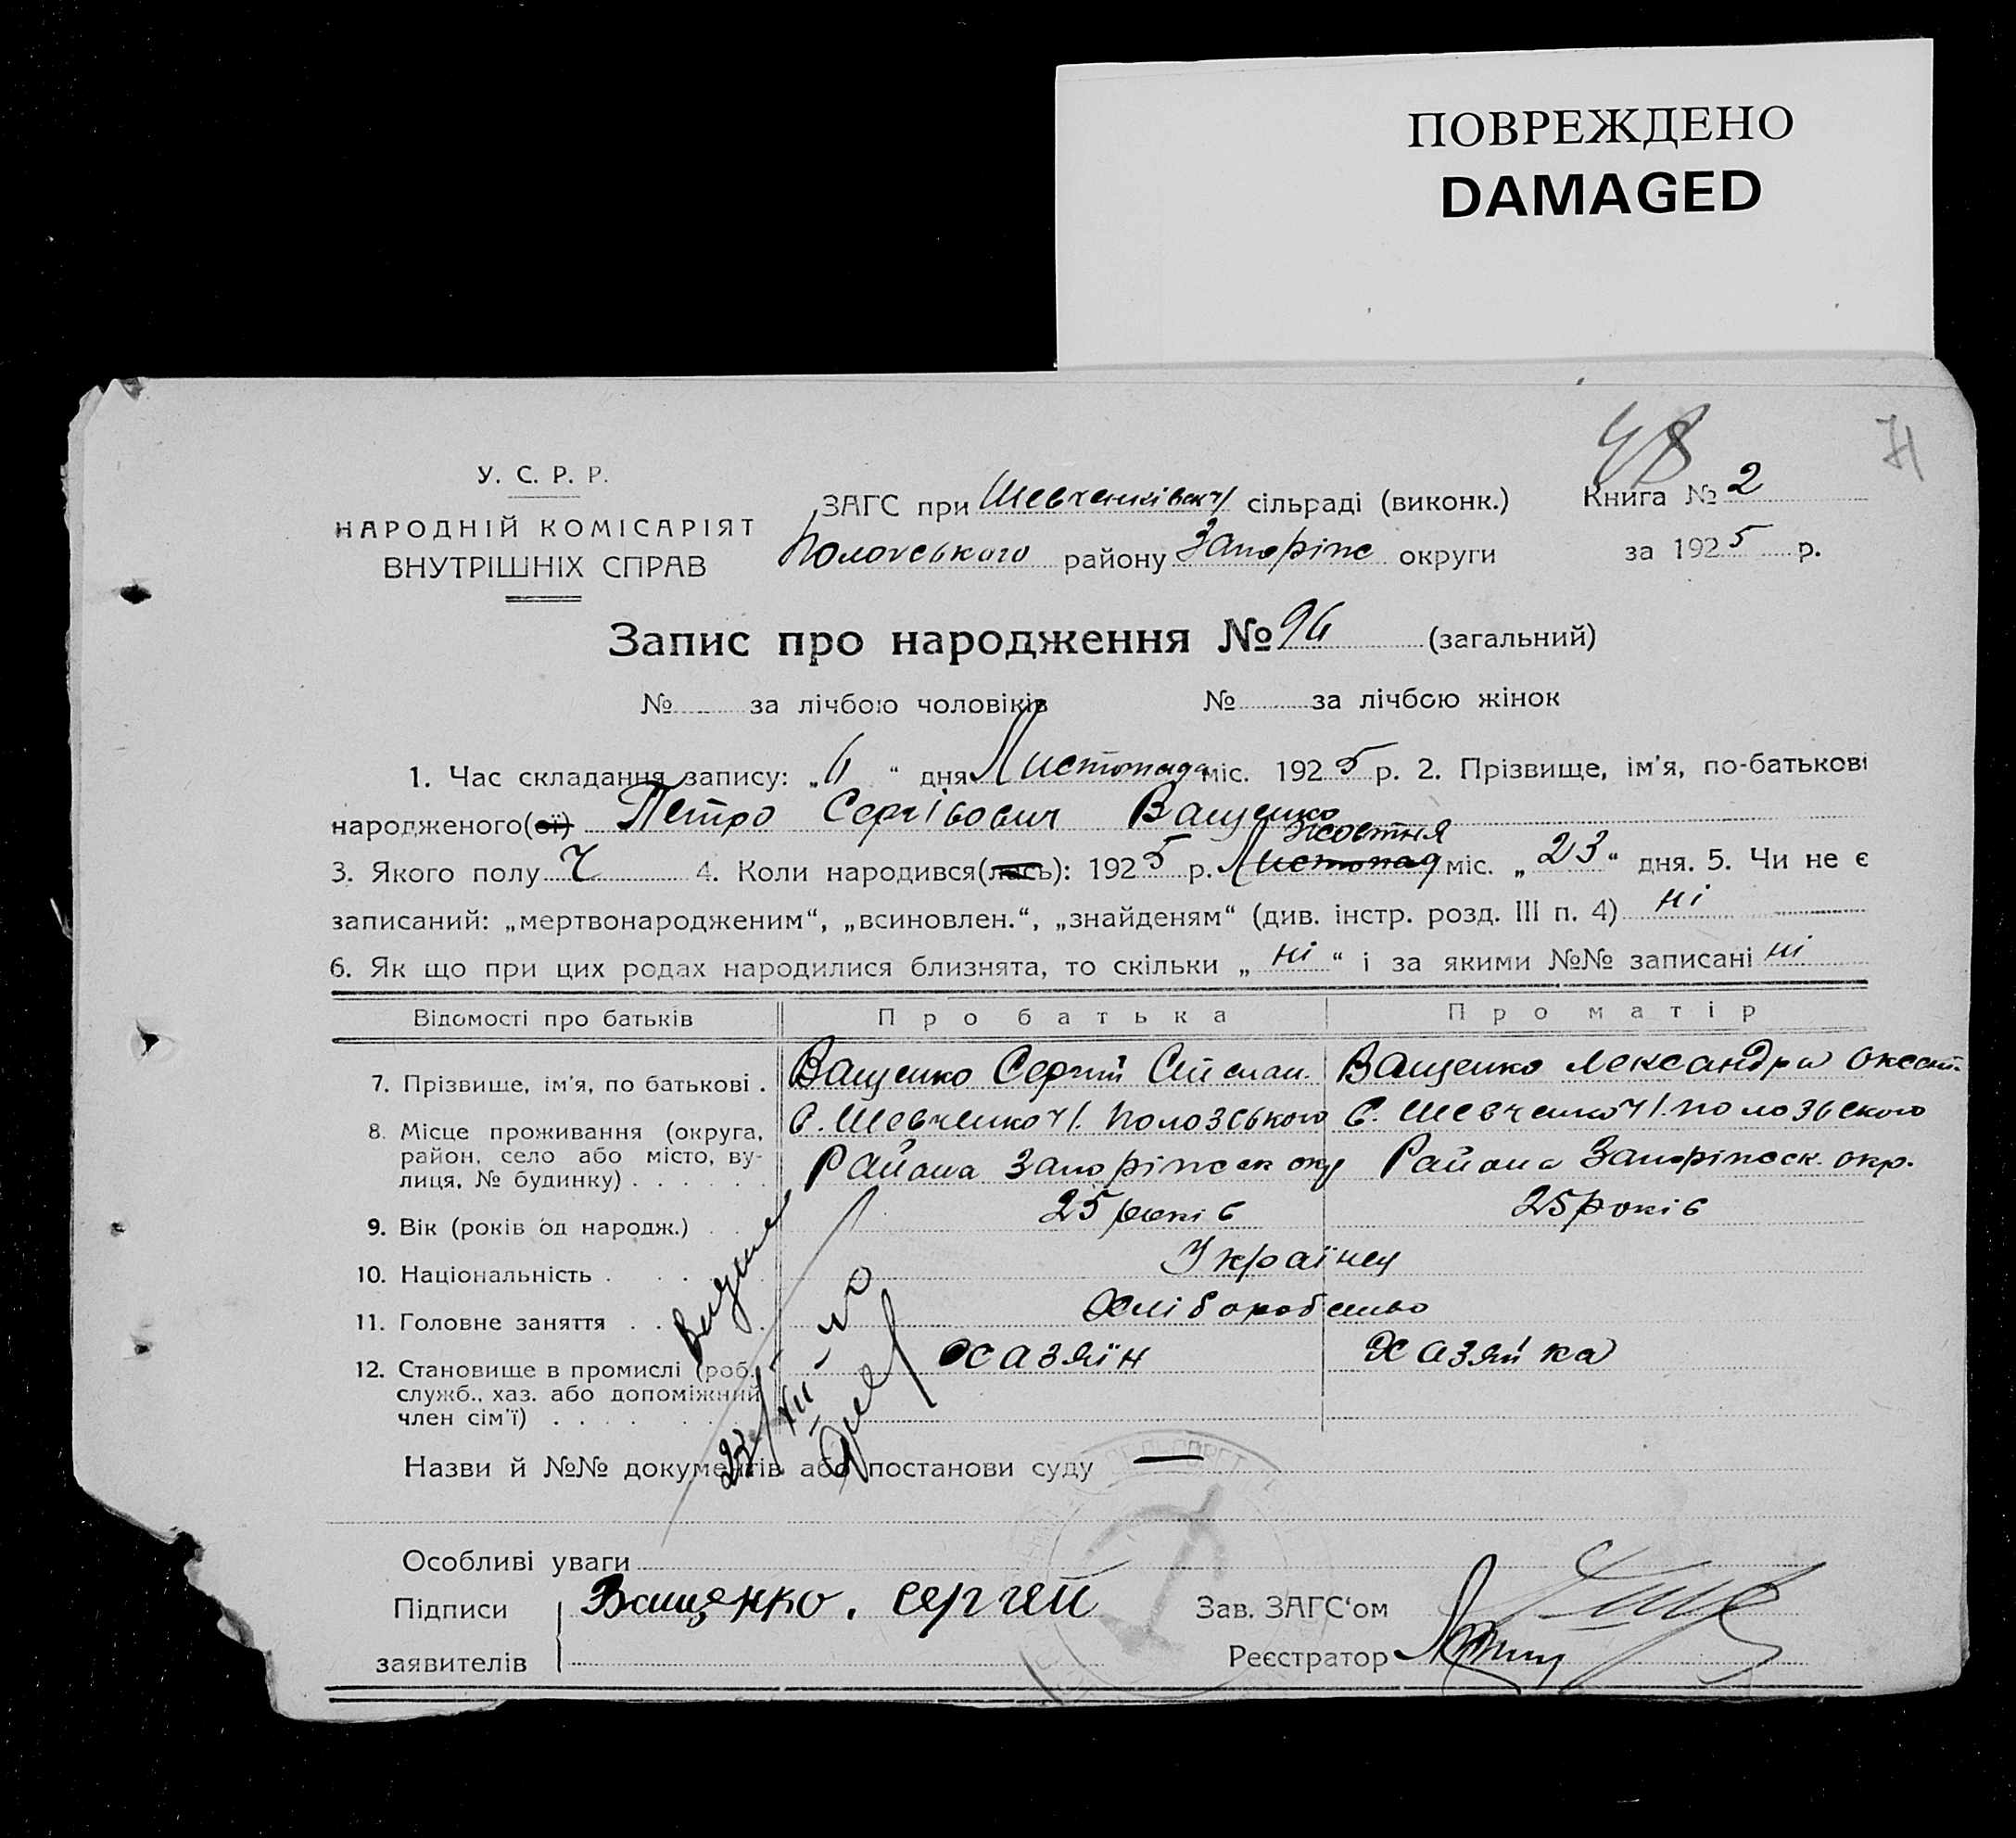 ПОВРЕЖДЕНО
DAMAGED
48
71
У. С. Р. Р.
НАРОДНІЙ КОМІСАРІЯТ
ВНУТРІШНІХ СПРАВ
ЗАГС при Шевченківськ сільраді (виконк.)
Пологського району Запоріпс округи
Книга № 2
за 1925 р.
Запис про народження № 96 (загальний)
№ за лічбою чоловіків № за лічбою жінок
1. Час складання запису: „6“ дня Листопада міс. 1925 р. 2. Прізвище, ім'я, по-батькові
народженого(ої) Петро Сергійович Ващенко
жовтня
3. Якого полу Ч 4. Коли народився(лась): 1925 р. Листопад міс. „23“ дня. 5. Чи не є
записаний: „мертвонародженим“, „всиновлен.“, „знайденям“ (див. інстр. розд. III п. 4) ні
6. Як що при цих родах народилися близнята, то скільки „ні“ і за якими №№ записані ні
Відомості про батьків Про батька Про матір
7. Прізвище, ім'я, по батькові . Ващенко Сергій Ващенко лександра
8. Місце проживання (округа, район, село або місто, вулиця, № будинку) . . . . . . С. Шевченко Пологського С. Шевченко пологського
Района Запоріпск окр Района Запоріпск. окр.
9. Вік (років од народж.) . . 25 років 25 років
10. Національність . . . . Українец
11. Головне заняття . . . . Хліборобство
12. Становище в промислі (роб., служб., хаз. або допоміжний член сім'ї) . . . . хазяїн хазяйка
Назви й №№ документів або постанови суду —
Особливі уваги
Підписи Ващенко. сергей Зав. ЗАГС'ом
заявителів Реєстратор